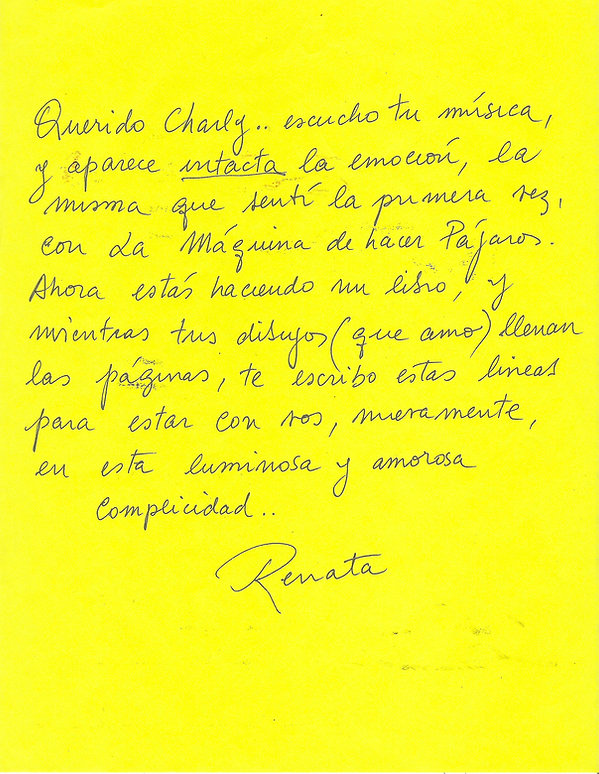 Querido Charly.. escucho tu música,
y aparece intacta la emoción, la
misma que sentí la primera vez,
con La Máquina de hacer Pájaros.
Ahora estás haciendo un libro, y
mientras tus dibujos (que amo) llenan
las páginas, te escribo estas lineas
para estar con vos, nuevamente,
en esta luminosa y amorosa
complicidad..
Renata